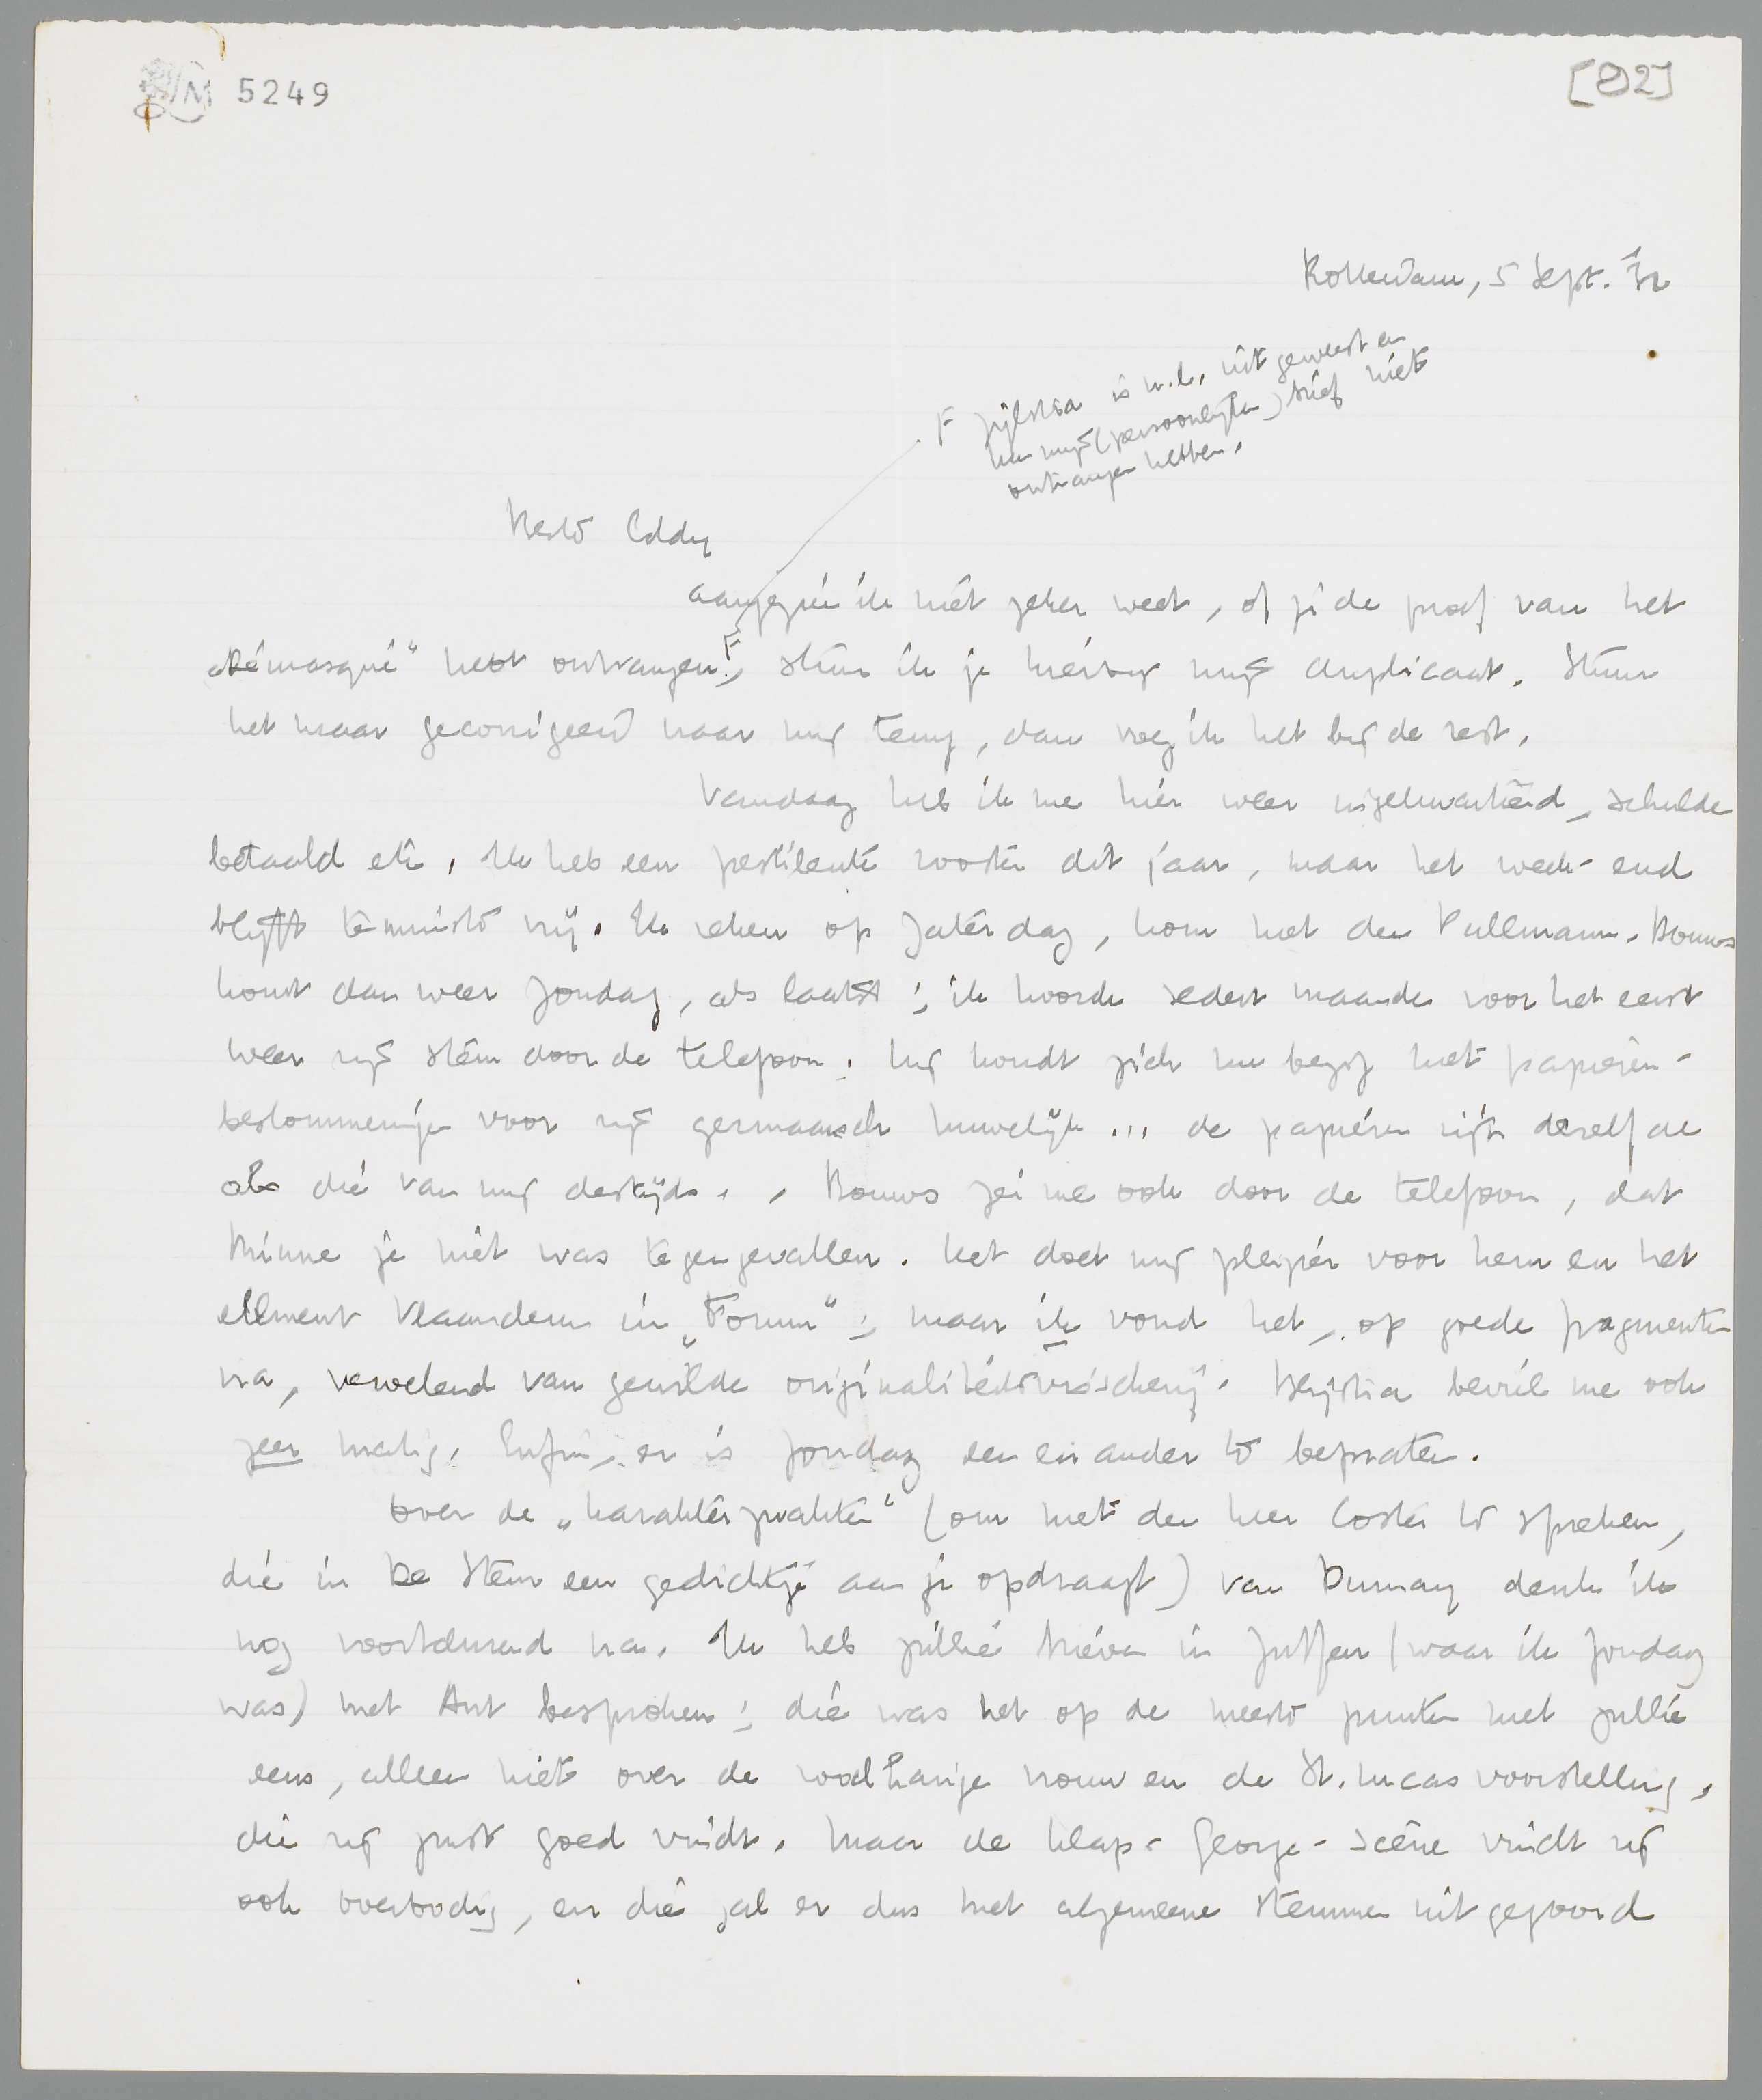 M 5249
[82]
Rotterdam, 5 Sept. '32
F Zijlstra is n.l. uit geweest en
kan mijn (persoonlijken) brief niet
ontvangen hebben.
Beste Eddy
aangezien ik niet zeker weet, of je de proef van het
"Démasqué" hebt ontvangen F, stuur ik je hierbij mijn duplicaat. Stuur
het maar gecorrigeerd naar mij terug, dan voeg ik het bij de rest.
Vandaag heb ik me hier weer ingekwartierd, schulden
betaald etc. Ik heb een pestilente rooster dit jaar, maar het week-end
blijft tenminste vrij. Ik reken op Zaterdag, kom met den Pullmann. Bouws
komt dan weer Zondag, als laatst; ik hoorde sedert maanden voor het eerst
weer zijn stem door de telefoon; hij houdt zich nu bezig met papieren-
beslommeringen voor zijn germaansch huwelijk ... de papieren zijn dezelfde
als die van mij destijds.. Bouws zei me ook door de telefoon, dat
Minne je niet was tegengevallen. Het doet mij plezier voor hem en het
element Vlaanderen in „Forum"; maar ik vond het, op goede fragmenten
na, vervelend van gewilde originaliteitsvisscherij. Marja beviel me ook
zeer matig. Enfin, er is Zondag een en ander te bepraten.
Over de „karakterzwakten" (om met den heer Coster te spreken,
die in De Stem een gedichtje aan je opdraagt) van Dumay denk ik
nog voortdurend na. Ik heb jullie brieven in Zutfen (waar ik Zondag
was) met Ant besproken; die was het op de meeste punten met jullie
eens, alleen niet over de roodharige vrouw en de St. Lucas voorstelling,
die zij juist goed vindt. Maar de klap-George-scène vindt zij
ook overbodig, en die zal er dus met algemeene stemmen uitgegooid